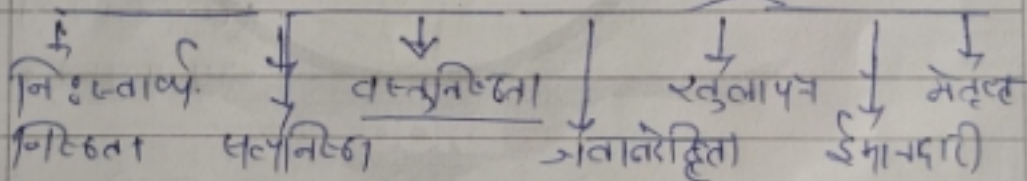 निःस्वार्थ वस्तुनिष्ठता खुलापन नेतृत्व
सत्यनिष्ठा जवाबदेहिता ईमानदारी